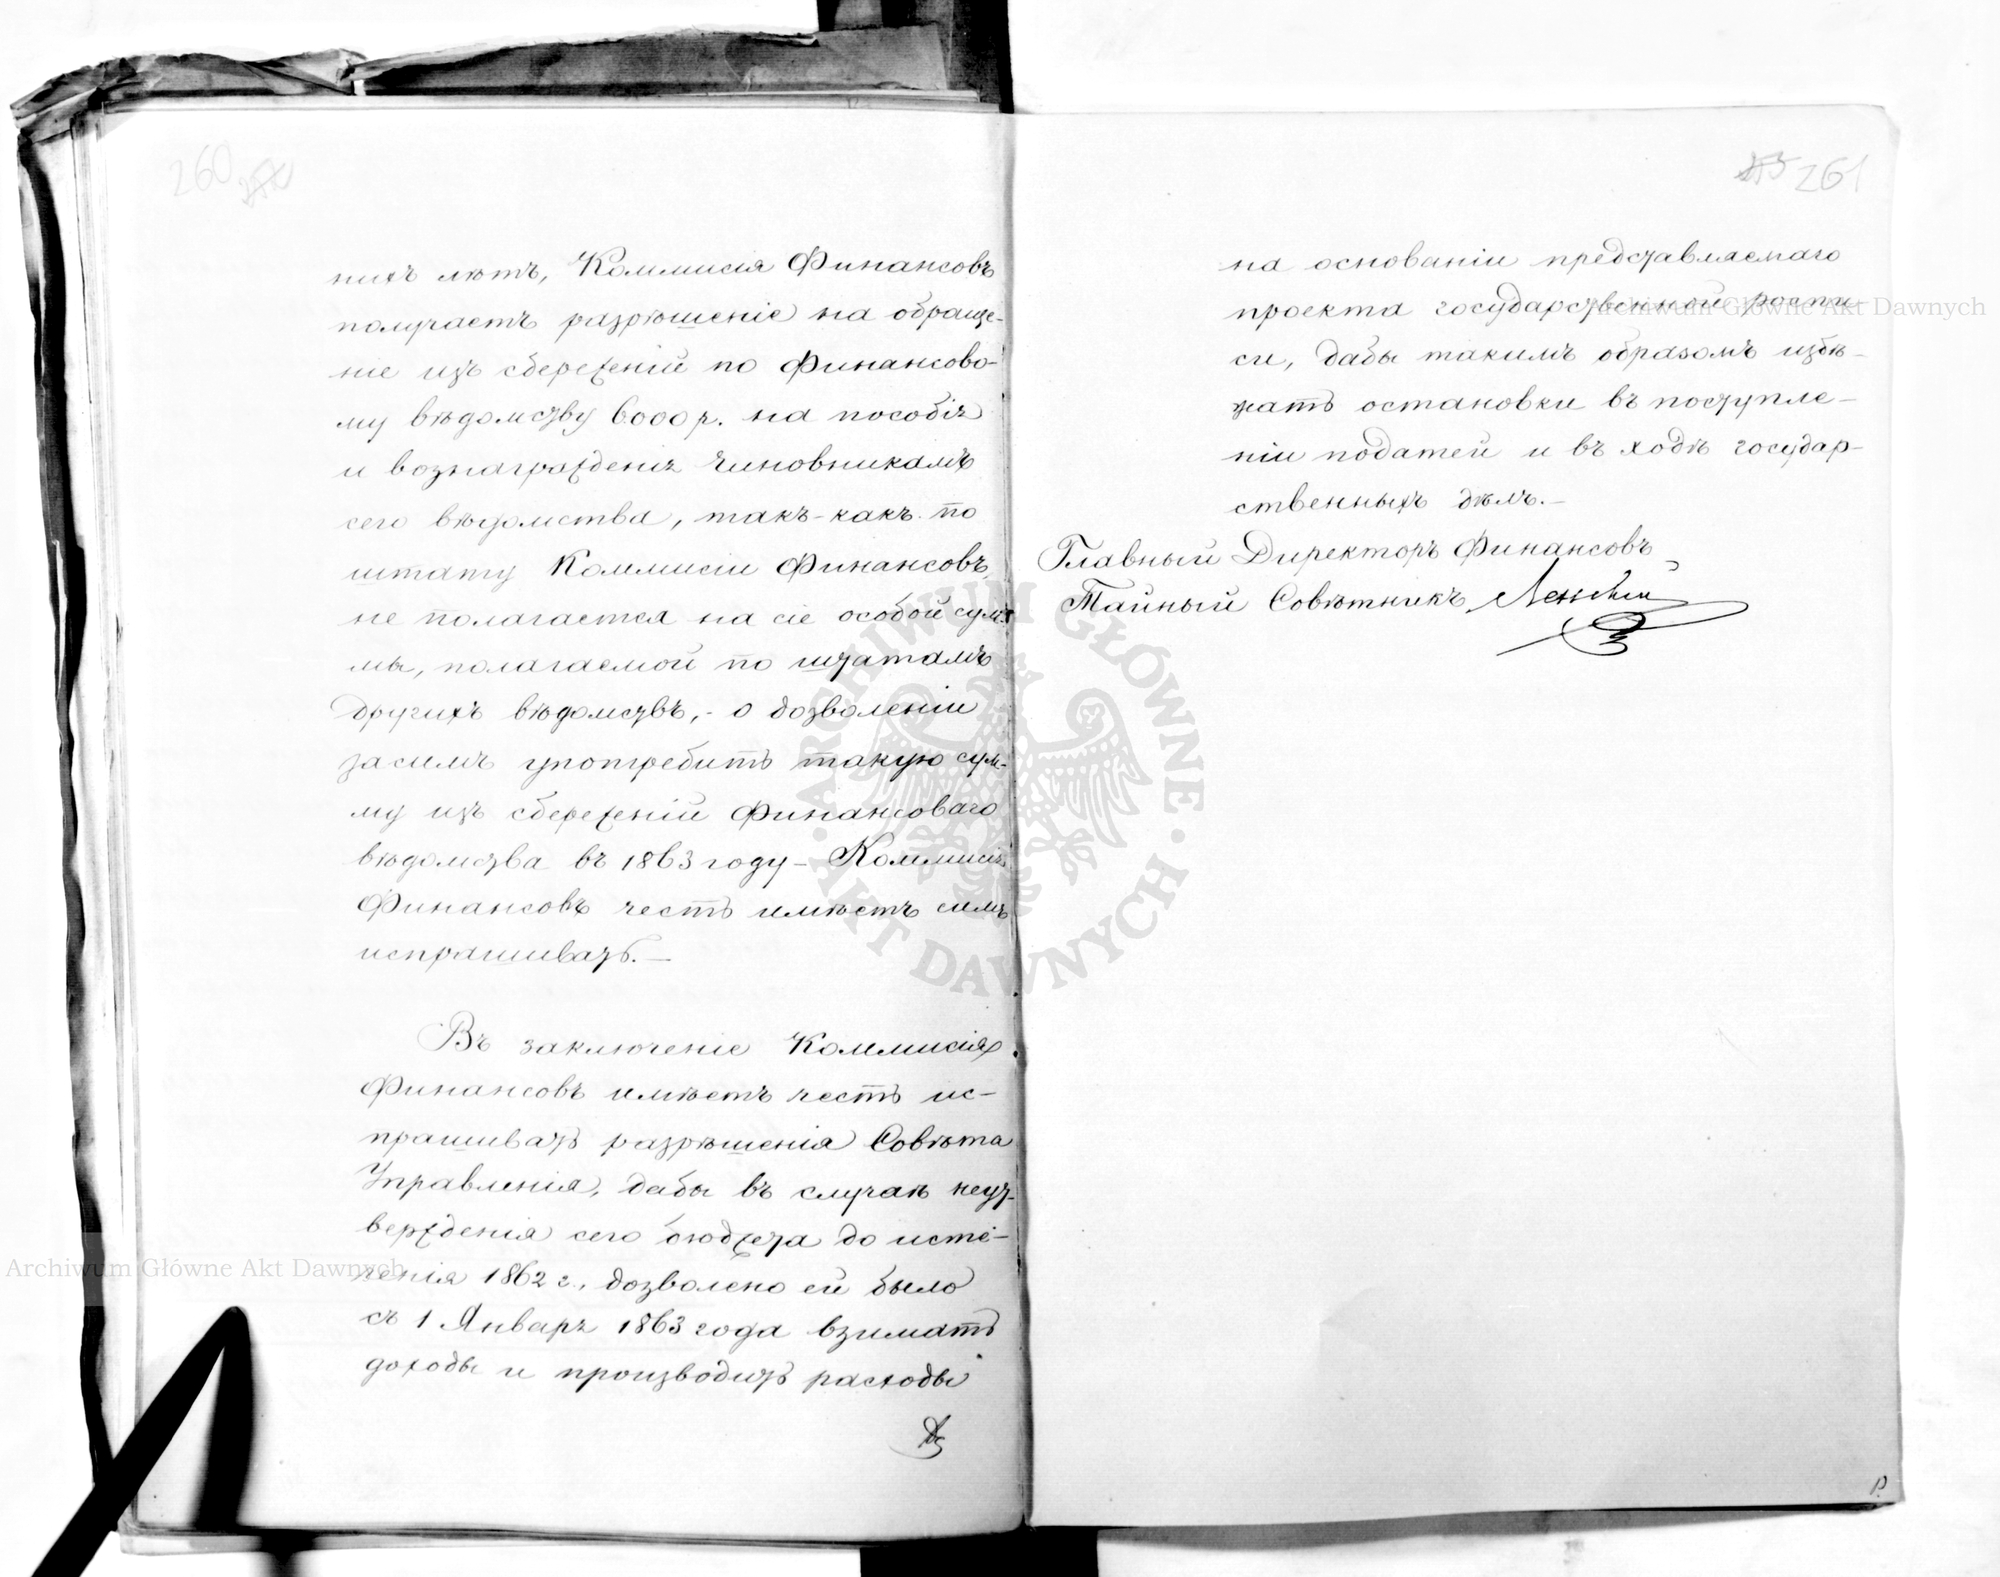 260
нихъ лѣтъ, Коммисія Финансовъ
получаетъ разрѣшеніе на обраще-
ніе изъ сбереженій по Финансово-
му вѣдомству 6000 р. на пособія
и вознагражденія чиновникамъ
сего вѣдомства, такъ-какъ по
штату Коммисіи Финансовъ
не полагается на сіе особой сум-
мы, полагаемой по штатамъ
другихъ вѣдомствъ, - о дозволеніи
засимъ употребить такую сум-
му изъ сбереженій Финансоваго
вѣдомства въ 1863 году - Коммисія
Финансовъ честь имѣетъ симъ
испрашивать. —
Въ заключеніе Коммисія
Финансовъ имѣетъ честь ис-
прашивать разрѣшенія Совѣта
Управленія, дабы въ случаѣ неут-
вержденія сего бюджета до исте-
ченія 1862 г., дозволено ей было
съ 1 Января 1863 года взимать
доходы и производить расходы
261
на основаніи представляемаго
проекта государственной роспи-
си, дабы такимъ образомъ избѣ-
жать остановки въ поступле-
ніи податей и въ ходѣ государ-
ственныхъ дѣлъ. —
Главный Директоръ Финансовъ
Тайный Совѣтникъ,
Archiwum Główne Akt Dawnych
Archiwum Główne Akt Dawnych
ARCHIWUM GŁÓWNE
· AKT DAWNYCH ·